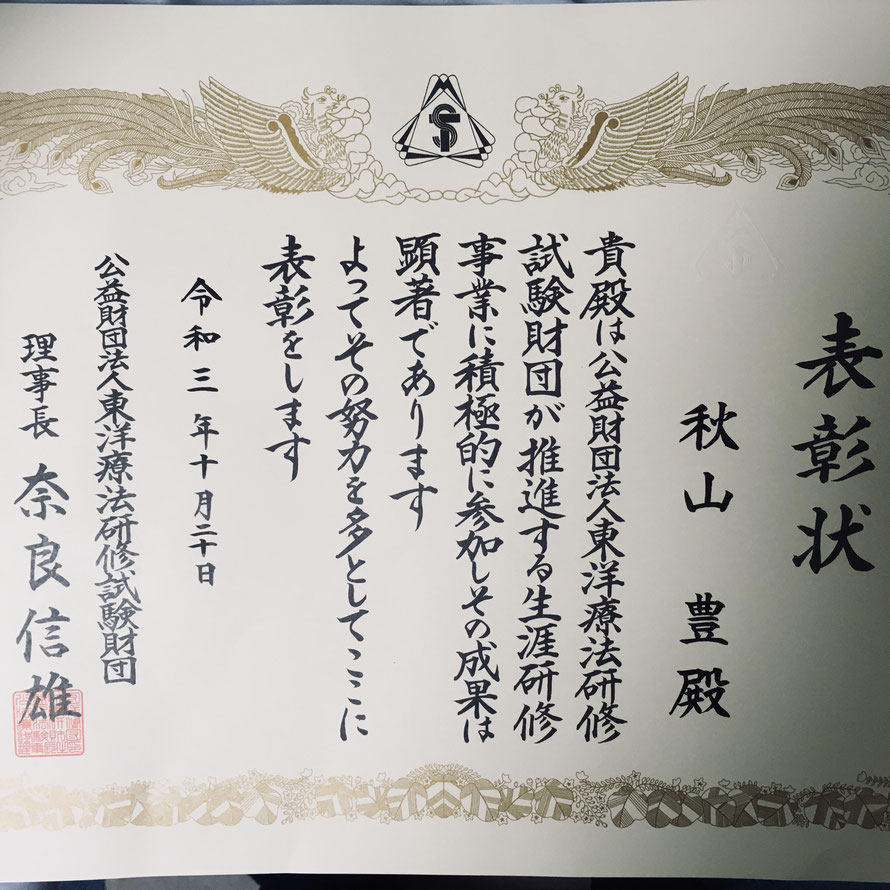 表彰状
秋山 豊 殿
貴殿は公益財団法人東洋療法研修
試験財団が推進する生涯研修
事業に積極的に参加しその成果は
顕著であります
よってその努力を多としてここに
表彰をします
令和三年十月二十日
公益財団法人東洋療法研修試験財団
理事長 奈良信雄